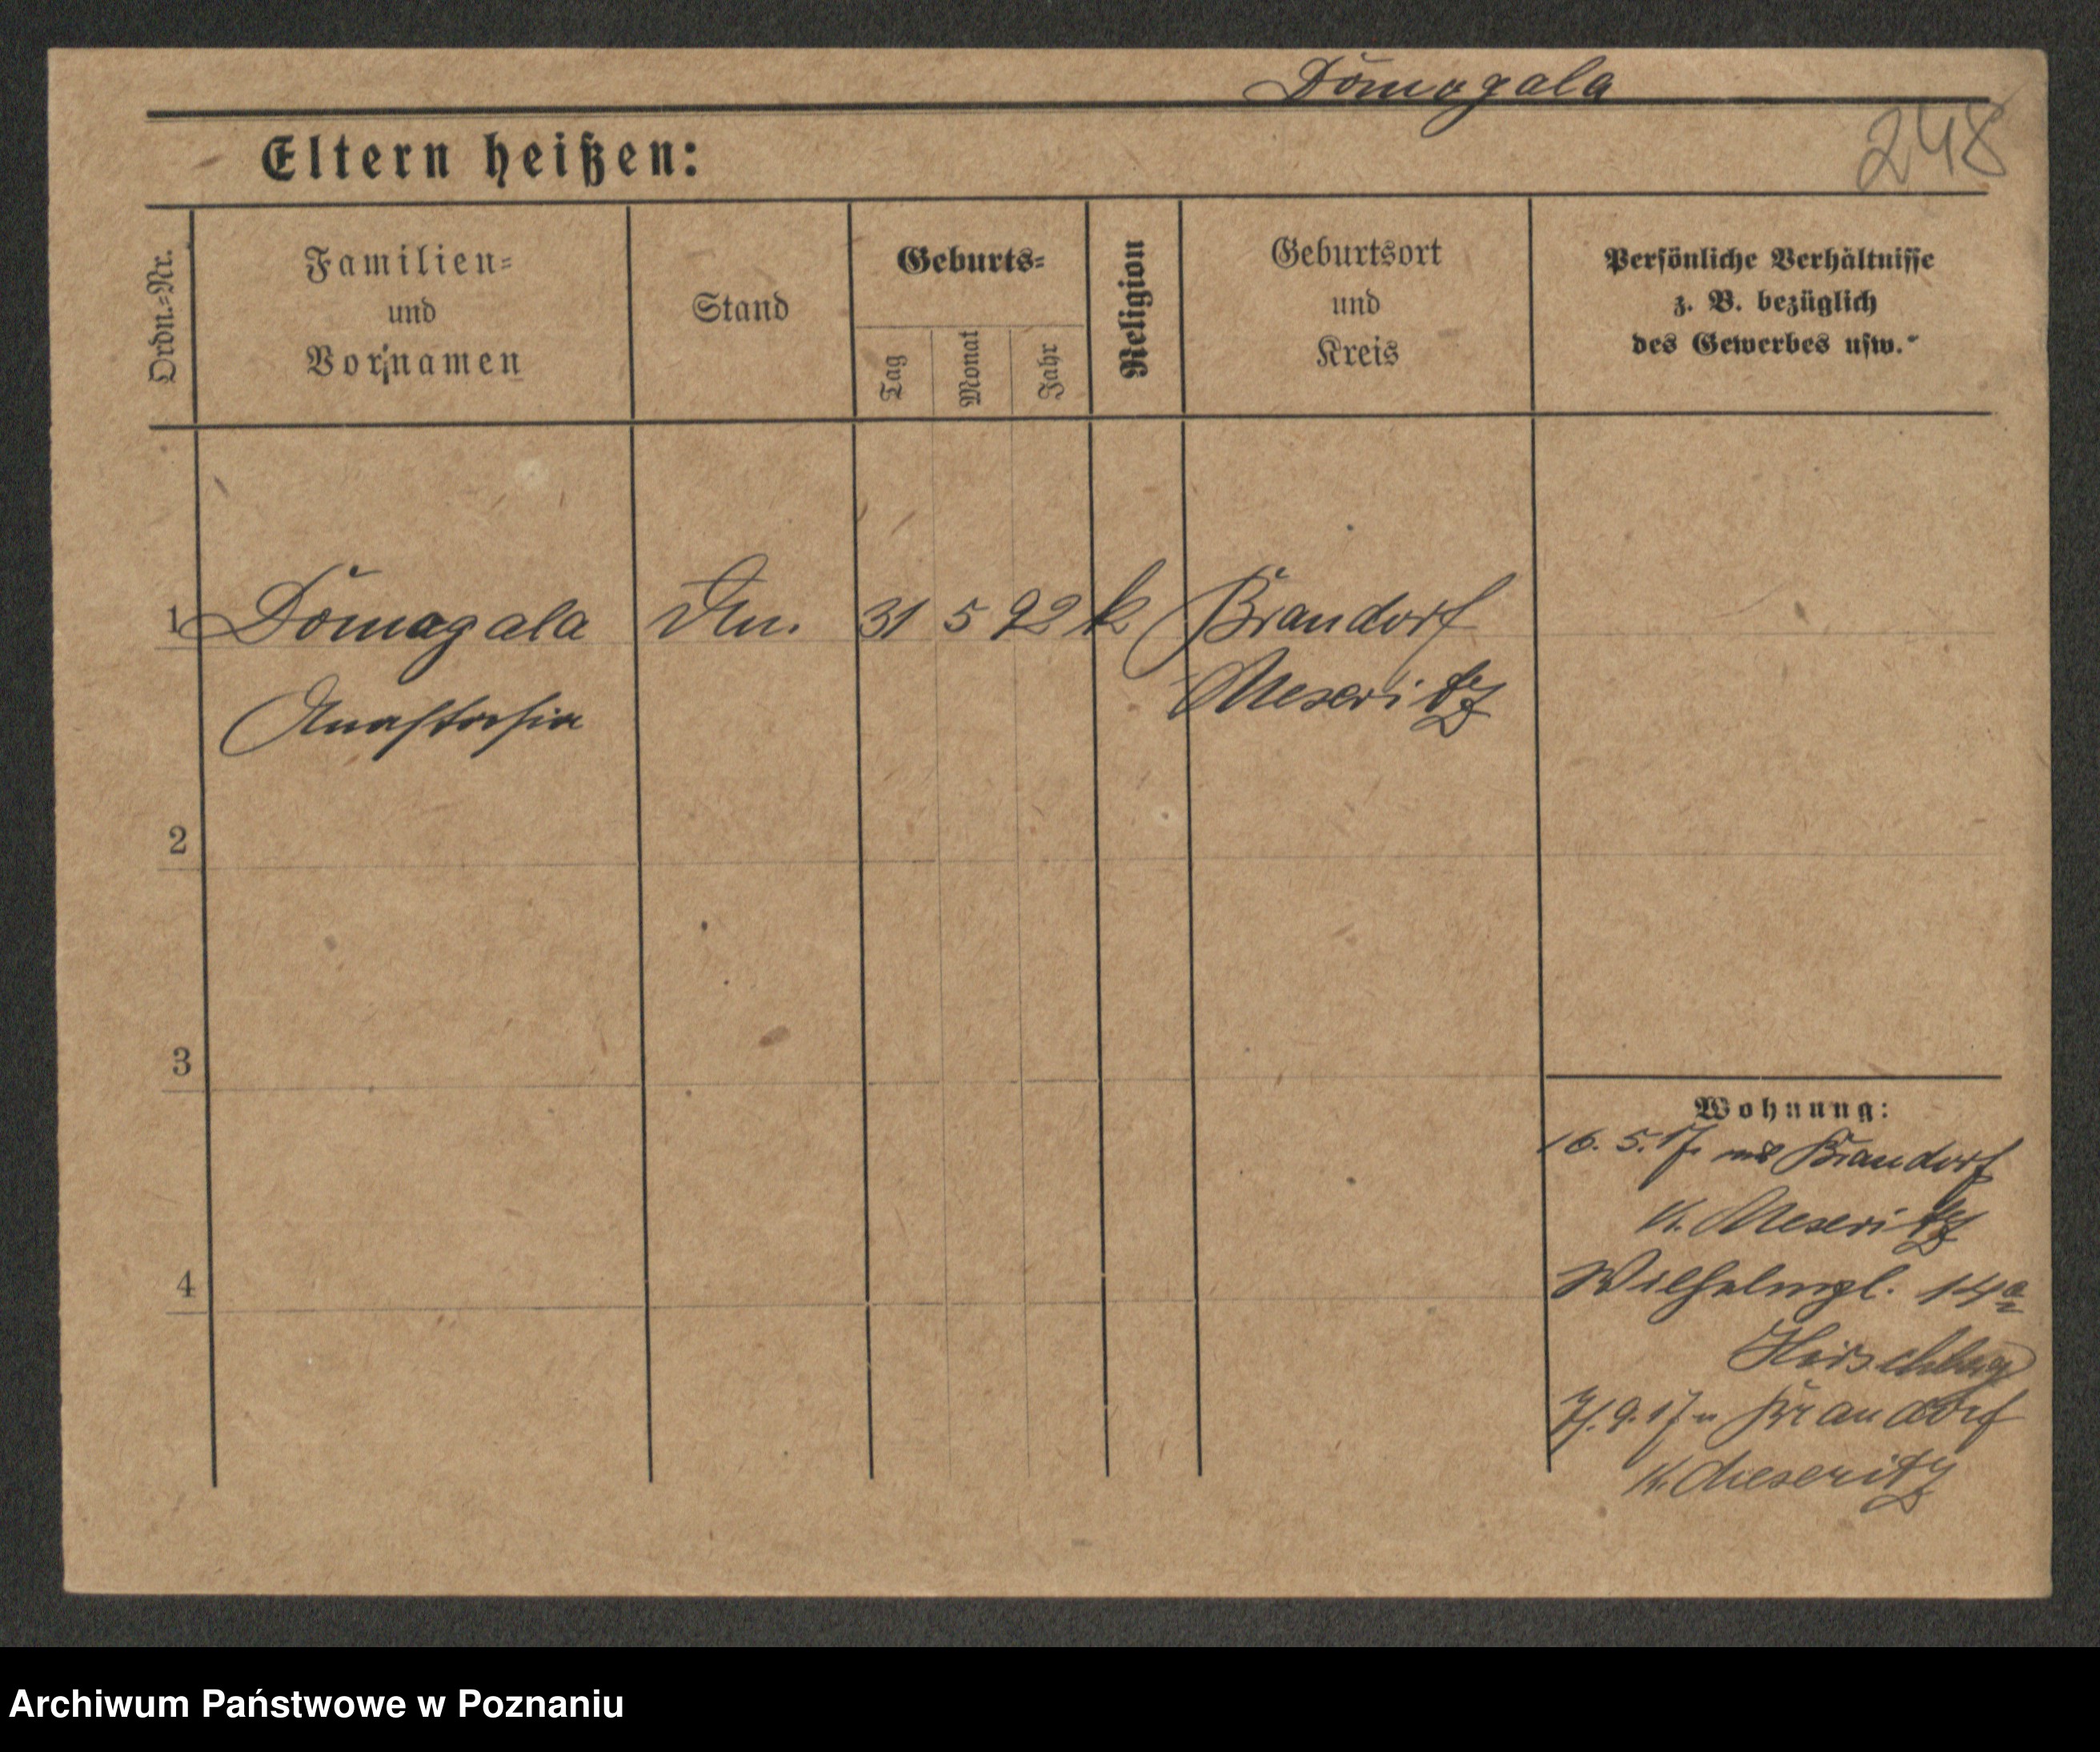 Domagala
248
Eltern heißen:
Ordn.-Nr.
Familien-
und
Vornamen
Stand
Geburts-
Tag
Monat
Jahr
Religion
Geburtsort
und
Kreis
Persönliche Verhältnisse
z. B. bezüglich
des Gewerbes usw.
1 Domagala 31 5 92 k Brandorf
Anastasia Meseritz
2
3
4
Wohnung:
16. 5. 17. aus Brandorf
K. Meseritz
Wilhelmpl. 14a
Hirschberg
9. 17 n Brandorf
K. Meseritz
Archiwum Państwowe w Poznaniu